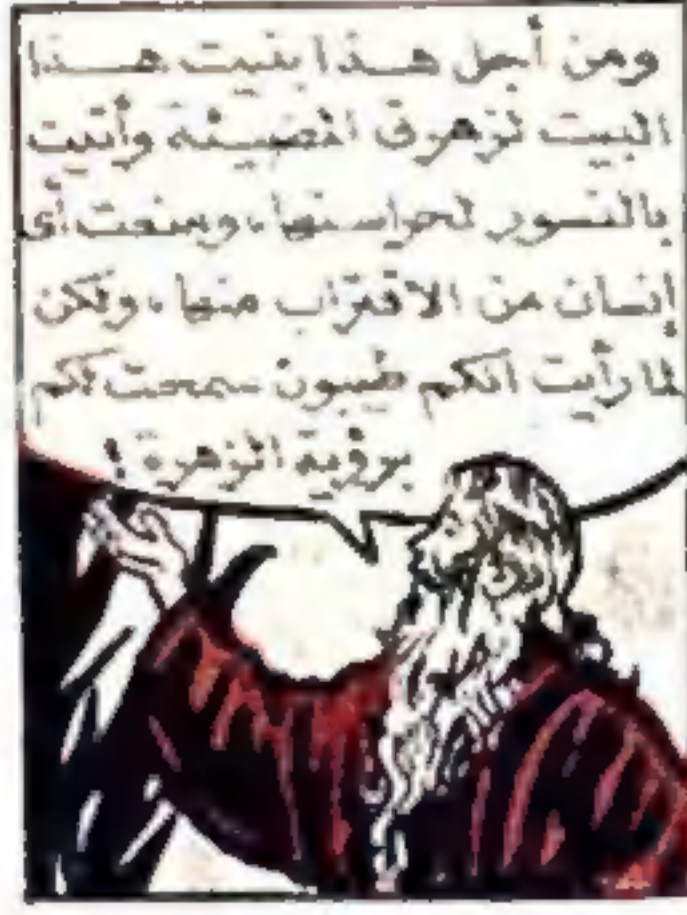 ومن أجل هـذا بنيت هـذا
البيت لزهرتى المضيئة وأتيت
بالنسور لحراستها، ومنعت أى
إنسان من الاقتراب منها، ولكن
لما رأيت أنكم طيبون سمحت لكم
برؤية الزهرة !